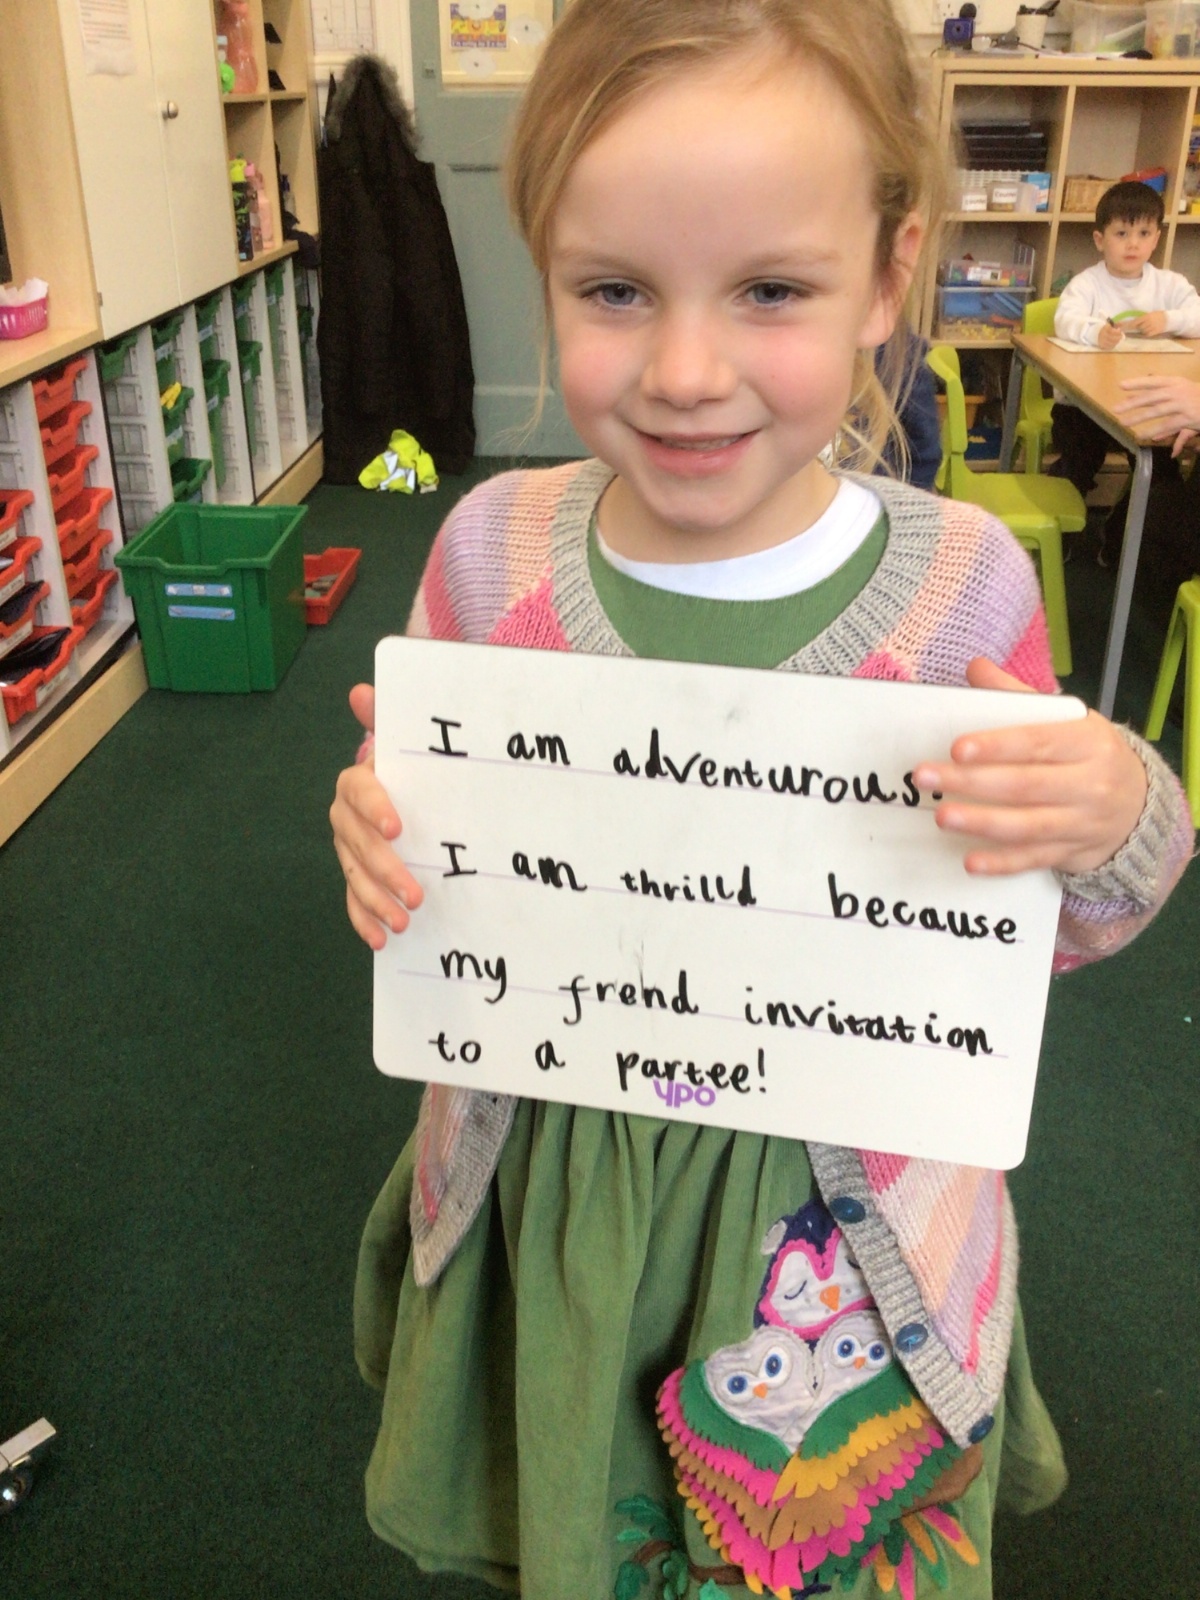 I am adventurous.
I am thrilld because
my frend invitation
to a partee!
ypo